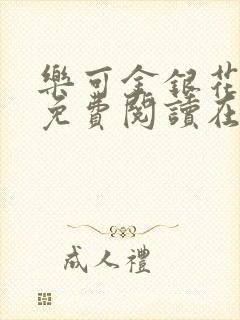 樂可金銀花
免費閱讀在
成人禮